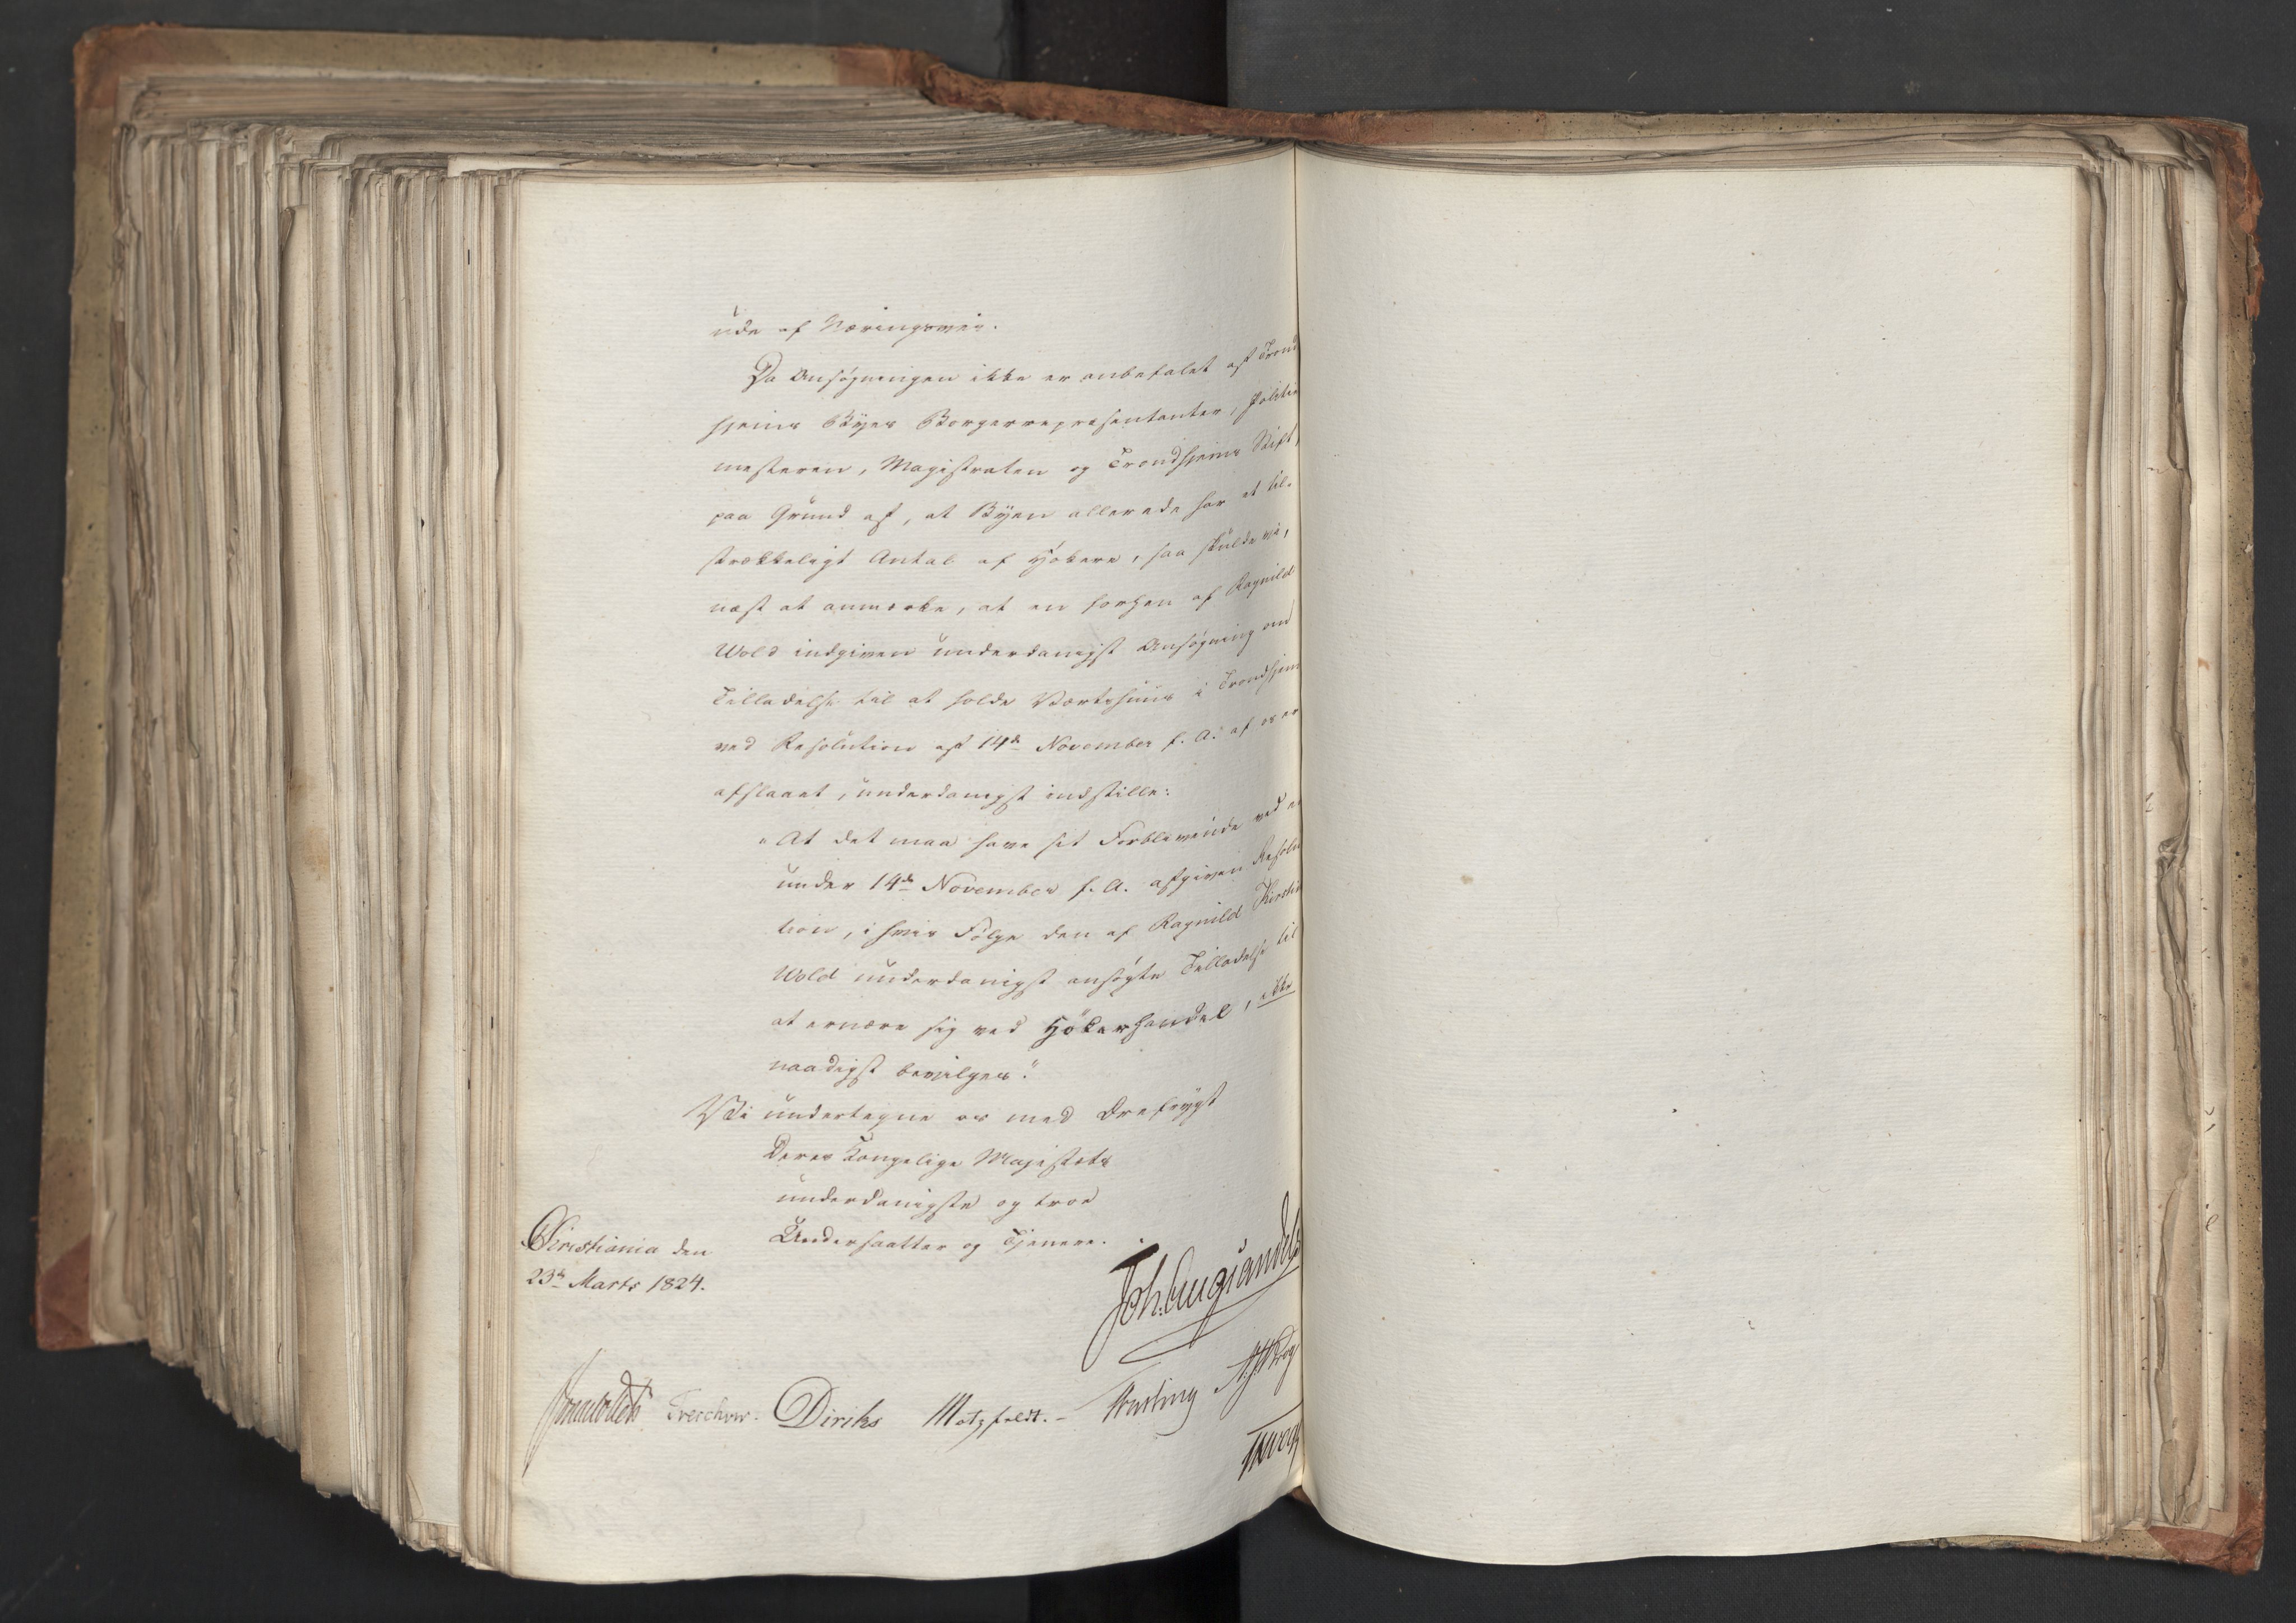 ude af Næringsvei.
Da Ansøgningen ikke er anbefalet af Trond
hjems Byes Borgerrepræsentanter, Politie
mesteren, Magistraten og Trondhjems Stift,
paa Grund af, at Byen allerede har et til-
strækkeligt Antal af Høkere, saa skulde vi,
næst at anmærke, at en forhen af Ragnild
Wold indgiven underdanigst Ansøgning om
Tilladelse til at holde Værtshuus i Trondhjem
ved Resolution af 14de November f. A. af os er
afslaaet, underdanigst indstille:
"At det maa have sit Forblivende ved
under 14de November f. A. afgiven Resolu
tion, i hvis Følge den af Ragnild Kirstin
Wold underdanigst ansøgte Tilladelse til
at ernære sig ved Høkerhandel, ikke
naadigst bevilges."
Vi undertegne os med Ærefrygt
Deres Kongelige Majestæts
underdanigste og troe
Undersaatter og Tjenere.
Christiania den
23de Marts 1824.
Joh. Aug Sandels
Sommerhielm Treschow. Diriks Motzfeldt. Fasting